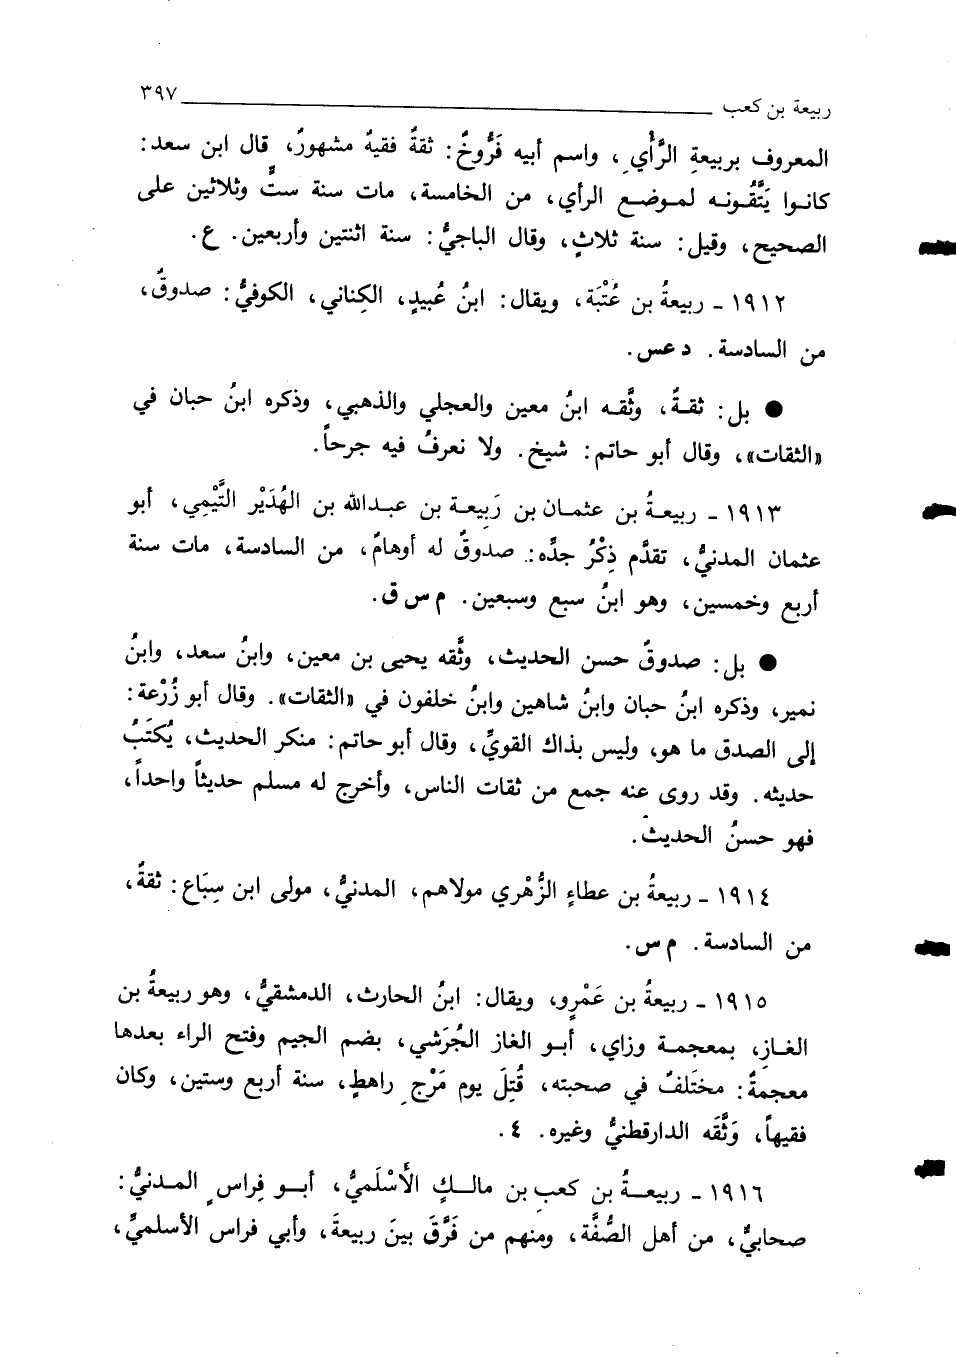 ربيعة بن كعب ٣٩٧
المعروف بربيعةِ الرَّأْيِ، واسم أبيه فَرُّوخٌ: ثقةٌ فقيهٌ مشهورٌ، قال ابن سعد:
كانوا يَتَّقُونه لموضع الرأي، من الخامسة، مات سنة ستٍّ وثلاثين على
الصحيح، وقيل: سنة ثلاثٍ، وقال الباجيُّ: سنة اثنتين وأربعين. ع.
١٩١٢ - ربيعةُ بن عُتْبَة، ويقال: ابنُ عُبيدٍ، الكِناني، الكوفيُّ: صدوقٌ،
من السادسة. د عس.
● بل: ثقةٌ، وثَّقه ابنُ معين والعجلي والذهبي، وذكره ابنُ حبان في
«الثقات»، وقال أبو حاتم: شيخ. ولا نعرفُ فيه جرحاً.
١٩١٣ - ربيعةُ بن عثمان بن رَبِيعة بن عبدالله بن الهُدَيْر التَّيْمِي، أبو
عثمان المدنيُّ، تقدَّم ذِكْرُ جدَّه: صدوقٌ له أوهامٌ، من السادسة، مات سنة
أربع وخمسين، وهو ابنُ سبع وسبعين. م س ق.
● بل: صدوقٌ حسن الحديث، وثَّقه يحيى بن معين، وابنُ سعد، وابنُ
نمير، وذكره ابنُ حبان وابنُ شاهين وابنُ خلفون في «الثقات». وقال أبو زُرْعة:
إلى الصدق ما هو، وليس بذاك القويِّ، وقال أبو حاتم: منكر الحديث، يُكتَبُ
حديثه. وقد روى عنه جمع من ثقات الناس، وأخرج له مسلم حديثاً واحداً،
فهو حسنُ الحديث.
١٩١٤ - ربيعةُ بن عطاءٍ الزُّهْري مولاهم، المدنيُّ، مولى ابن سِبَاع: ثقةٌ،
من السادسة. م س.
١٩١٥ - ربيعةُ بن عَمْرٍو، ويقال: ابنُ الحارث، الدمشقيُّ، وهو ربيعةُ بن
الغازِ، بمعجمة وزاي، أبو الغاز الجُرَشي، بضم الجيم وفتح الراء بعدها
معجمةٌ: مختَلفٌ في صحبته، قُتِلَ يوم مَرْجِ راهطٍ، سنة أربع وستين، وكان
فقيهاً، وَثَّقَه الدارقطنيُّ وغيره. ٤.
١٩١٦ - ربيعةُ بن كعبِ بن مالكٍ الأَسْلَميُّ، أبو فِراسٍ المدنيُّ:
صحابيٌّ، من أهل الصُّفَّة، ومنهم من فَرَّقَ بينَ ربيعةَ، وأبي فراس الأسلميِّ،